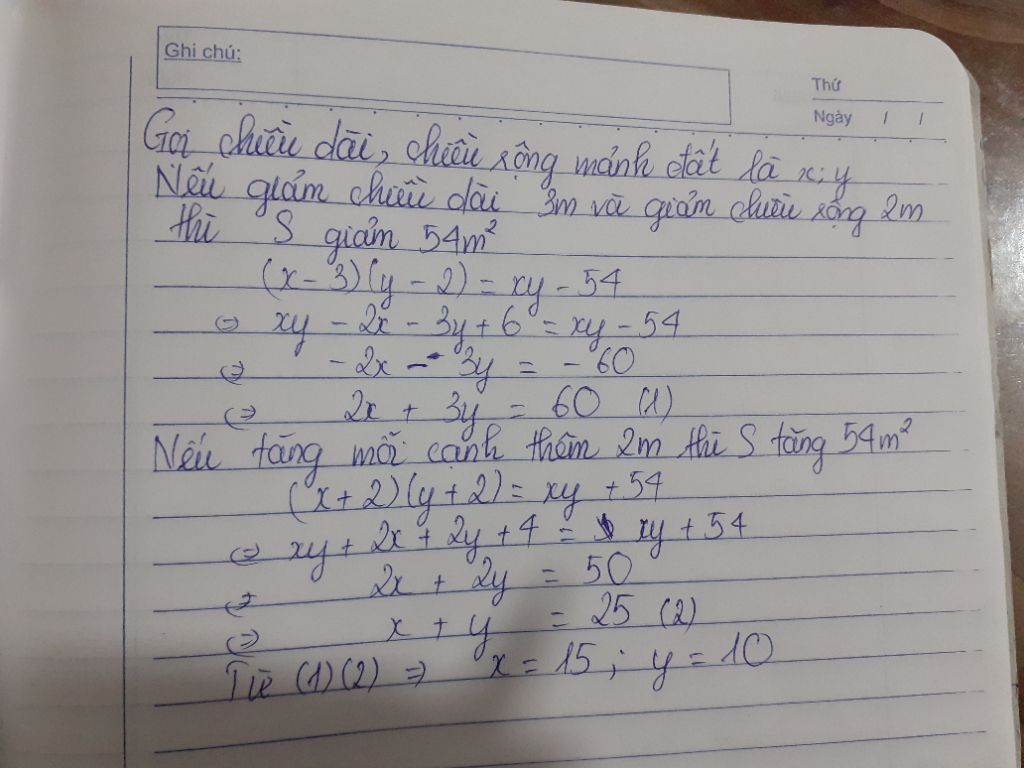 Ghi chú:
Thứ
Ngày / /
Gọi chiều dài, chiều rộng mảnh đất là x; y
Nếu giảm chiều dài 3m và giảm chiều rộng 2m
thì S giảm 54m²
(x - 3)(y - 2) = xy - 54
⇔ xy - 2x - 3y + 6 = xy - 54
⇔ - 2x - 3y = - 60
⇔ 2x + 3y = 60 (1)
Nếu tăng mỗi cạnh thêm 2m thì S tăng 54m²
(x + 2)(y + 2) = xy + 54
⇔ xy + 2x + 2y + 4 = xy + 54
⇔ 2x + 2y = 50
⇔ x + y = 25 (2)
Từ (1)(2) ⇒ x = 15 ; y = 10